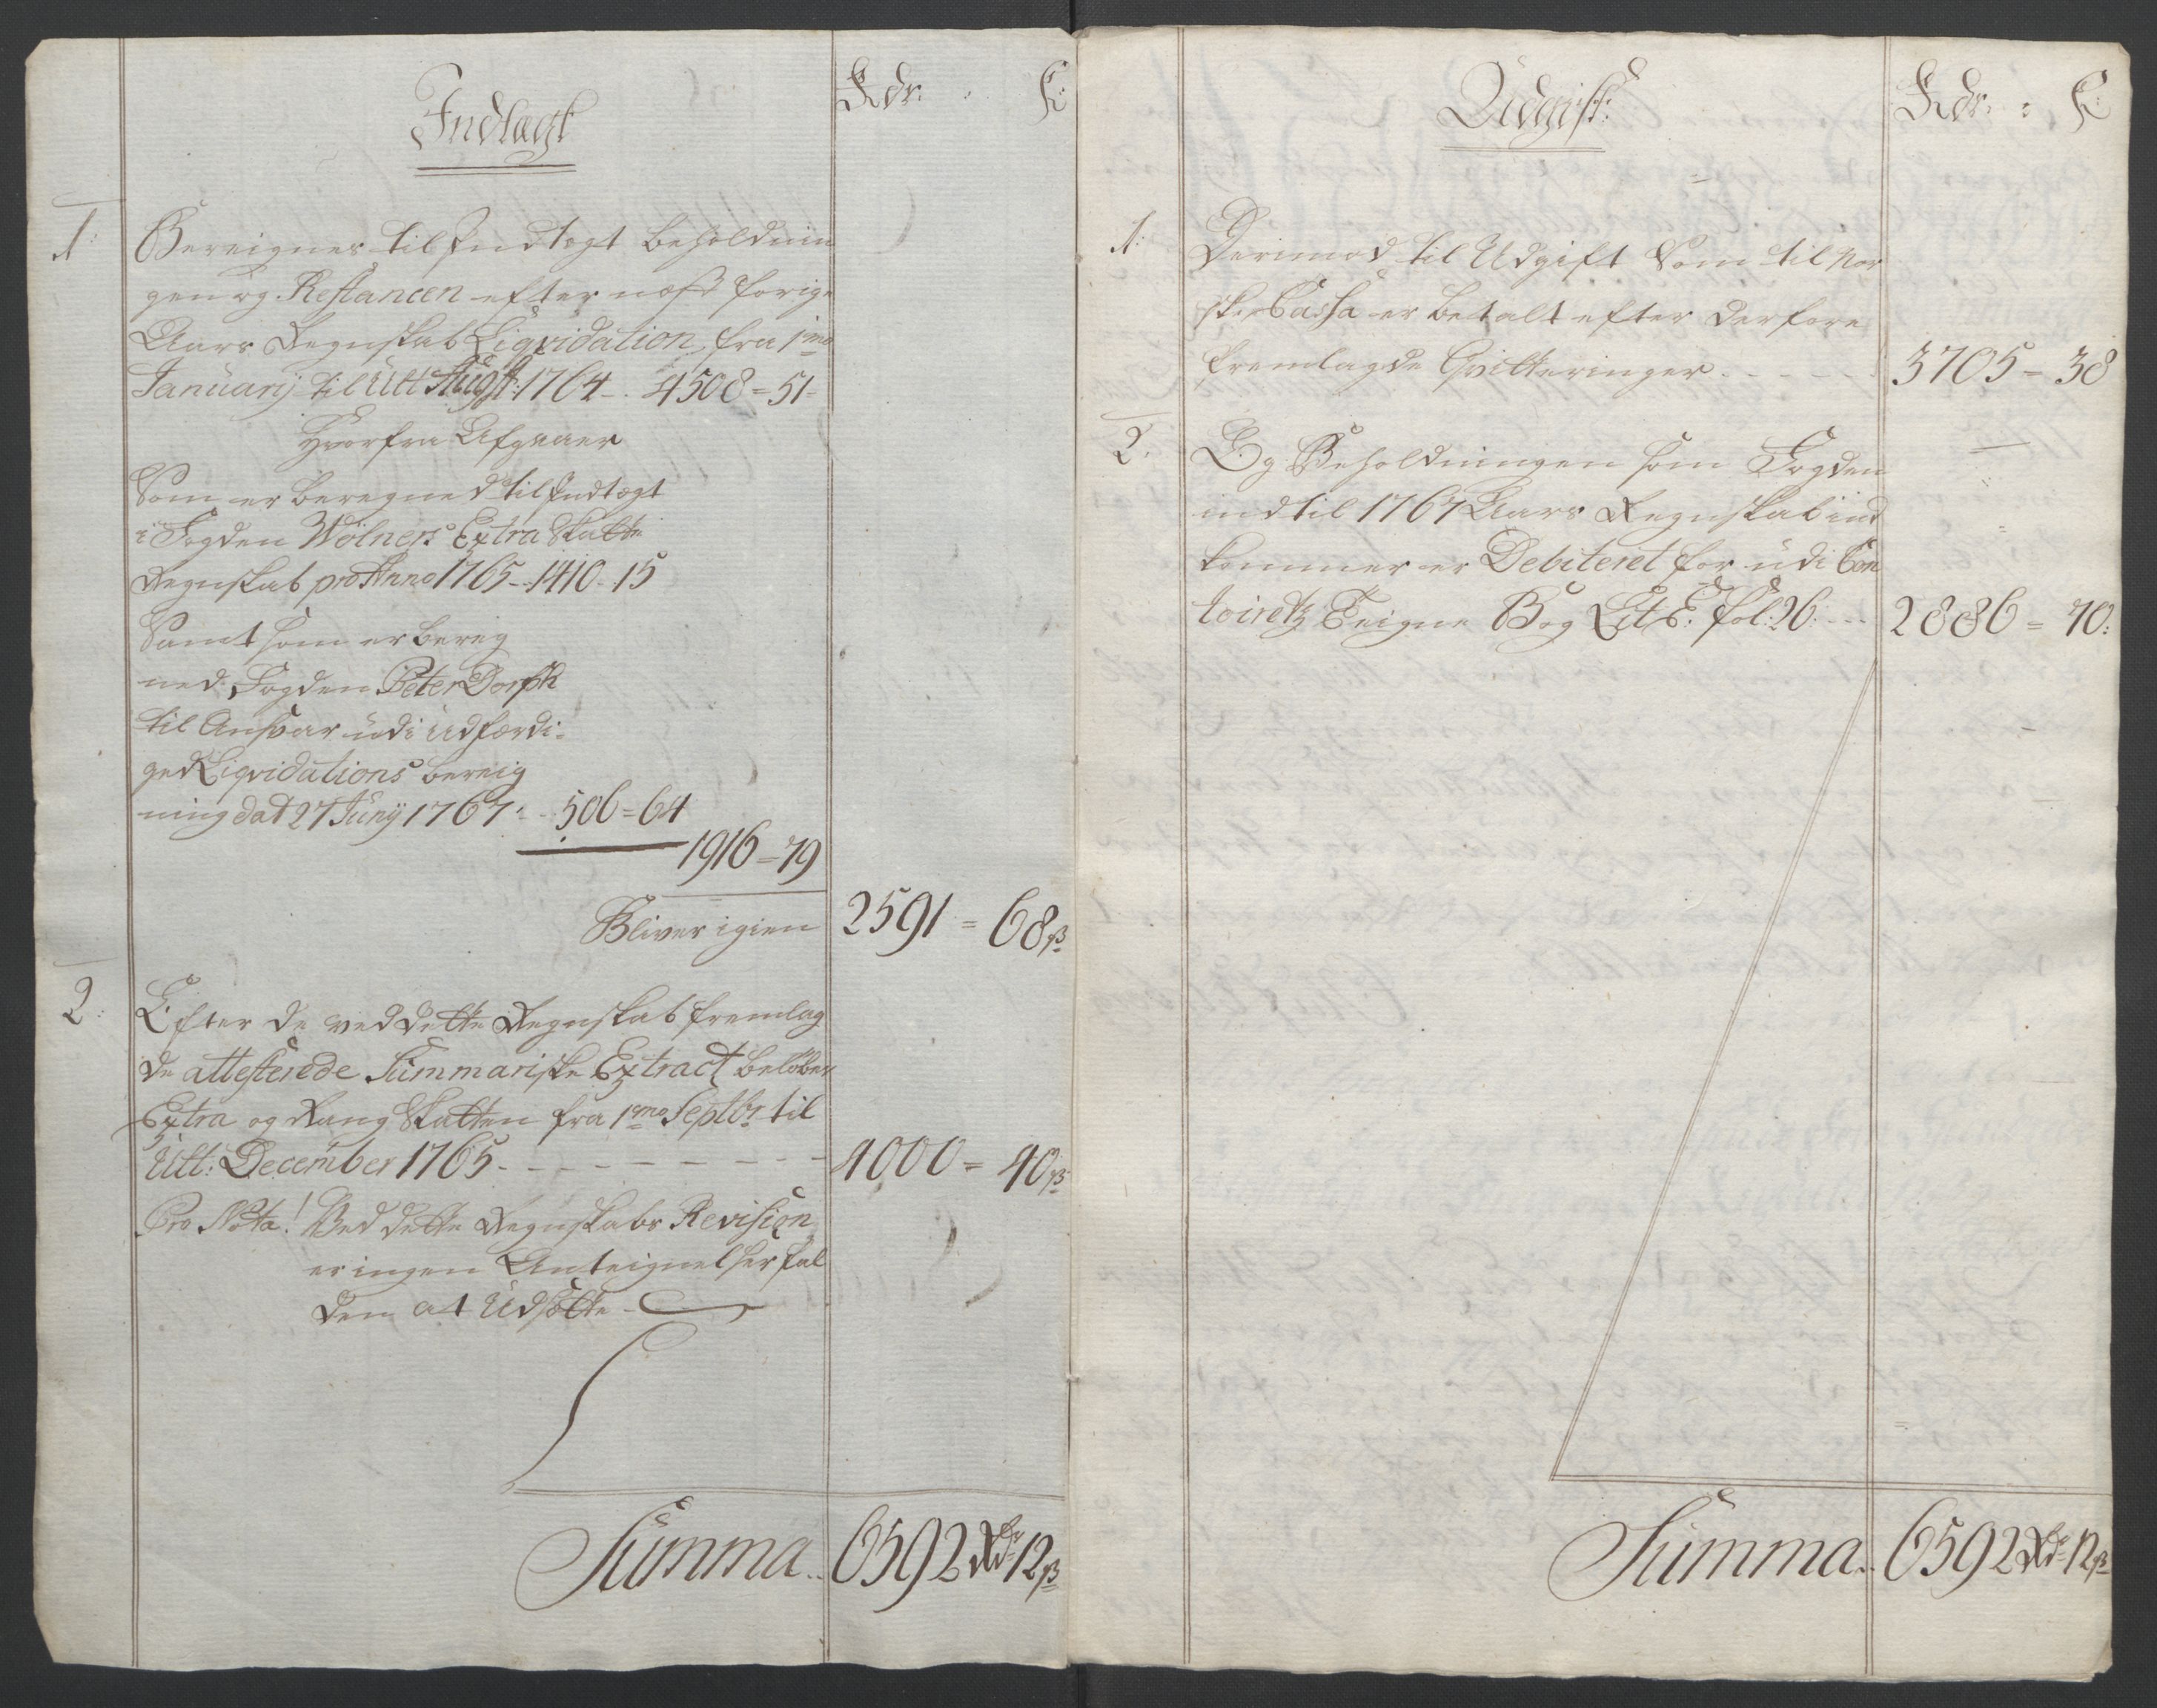 Indtægt
Rdr: ß:
1. Bereignes til Indtægt beholdnin
gen og Restancen efter næst forige
Aars Regnskab Liqvidation, fra 1mo
Januarij til Ult: Augst: 1764 - 4508 = 51 -
Hvorfra Afgaaer
Som er beregned til Indtægt
i Fogden Wölners Extra Skatte
Regnskab pro Anno 1765 - 1410 - 15
Samt som er bereg
ned Fogden Peter
til Ansvar udi udfærdi-
ged Liqvidations bereig
ning dat 27 Junij 1767: 506 = 64
1916 = 79
Bliver igien 2591 = 68 ß
2. Efter de ved dette Regnskab fremlag
de attesterede Summariske Extract beløber
Extra og Rang Skatten fra 1mo Septbr til
Ult: December 1765 - - - - - - - - 4000 = 40 ß
Pro Nota! Ved dette Regnskabs Revision
er ingen Anteignelser fal
den at Udsætte -
Summa.. 6592 Rdr 12 ß
Udgift:
Rdr: ß:
1: Derimod til Udgift Som til Nor
ske Cassa er betalt efter derfore
fremlagde Qvitteringer - - - - - 3705 = 38
2. Og Beholdningen som Fogden
ind til 1767 Aars Regnskab ind
kommer er Debiteret for udi Con
toiretz Teigne Bog Lit E: fol: 26: - - 2886 = 70:
Summa.. 6592 Rdr 12 ß